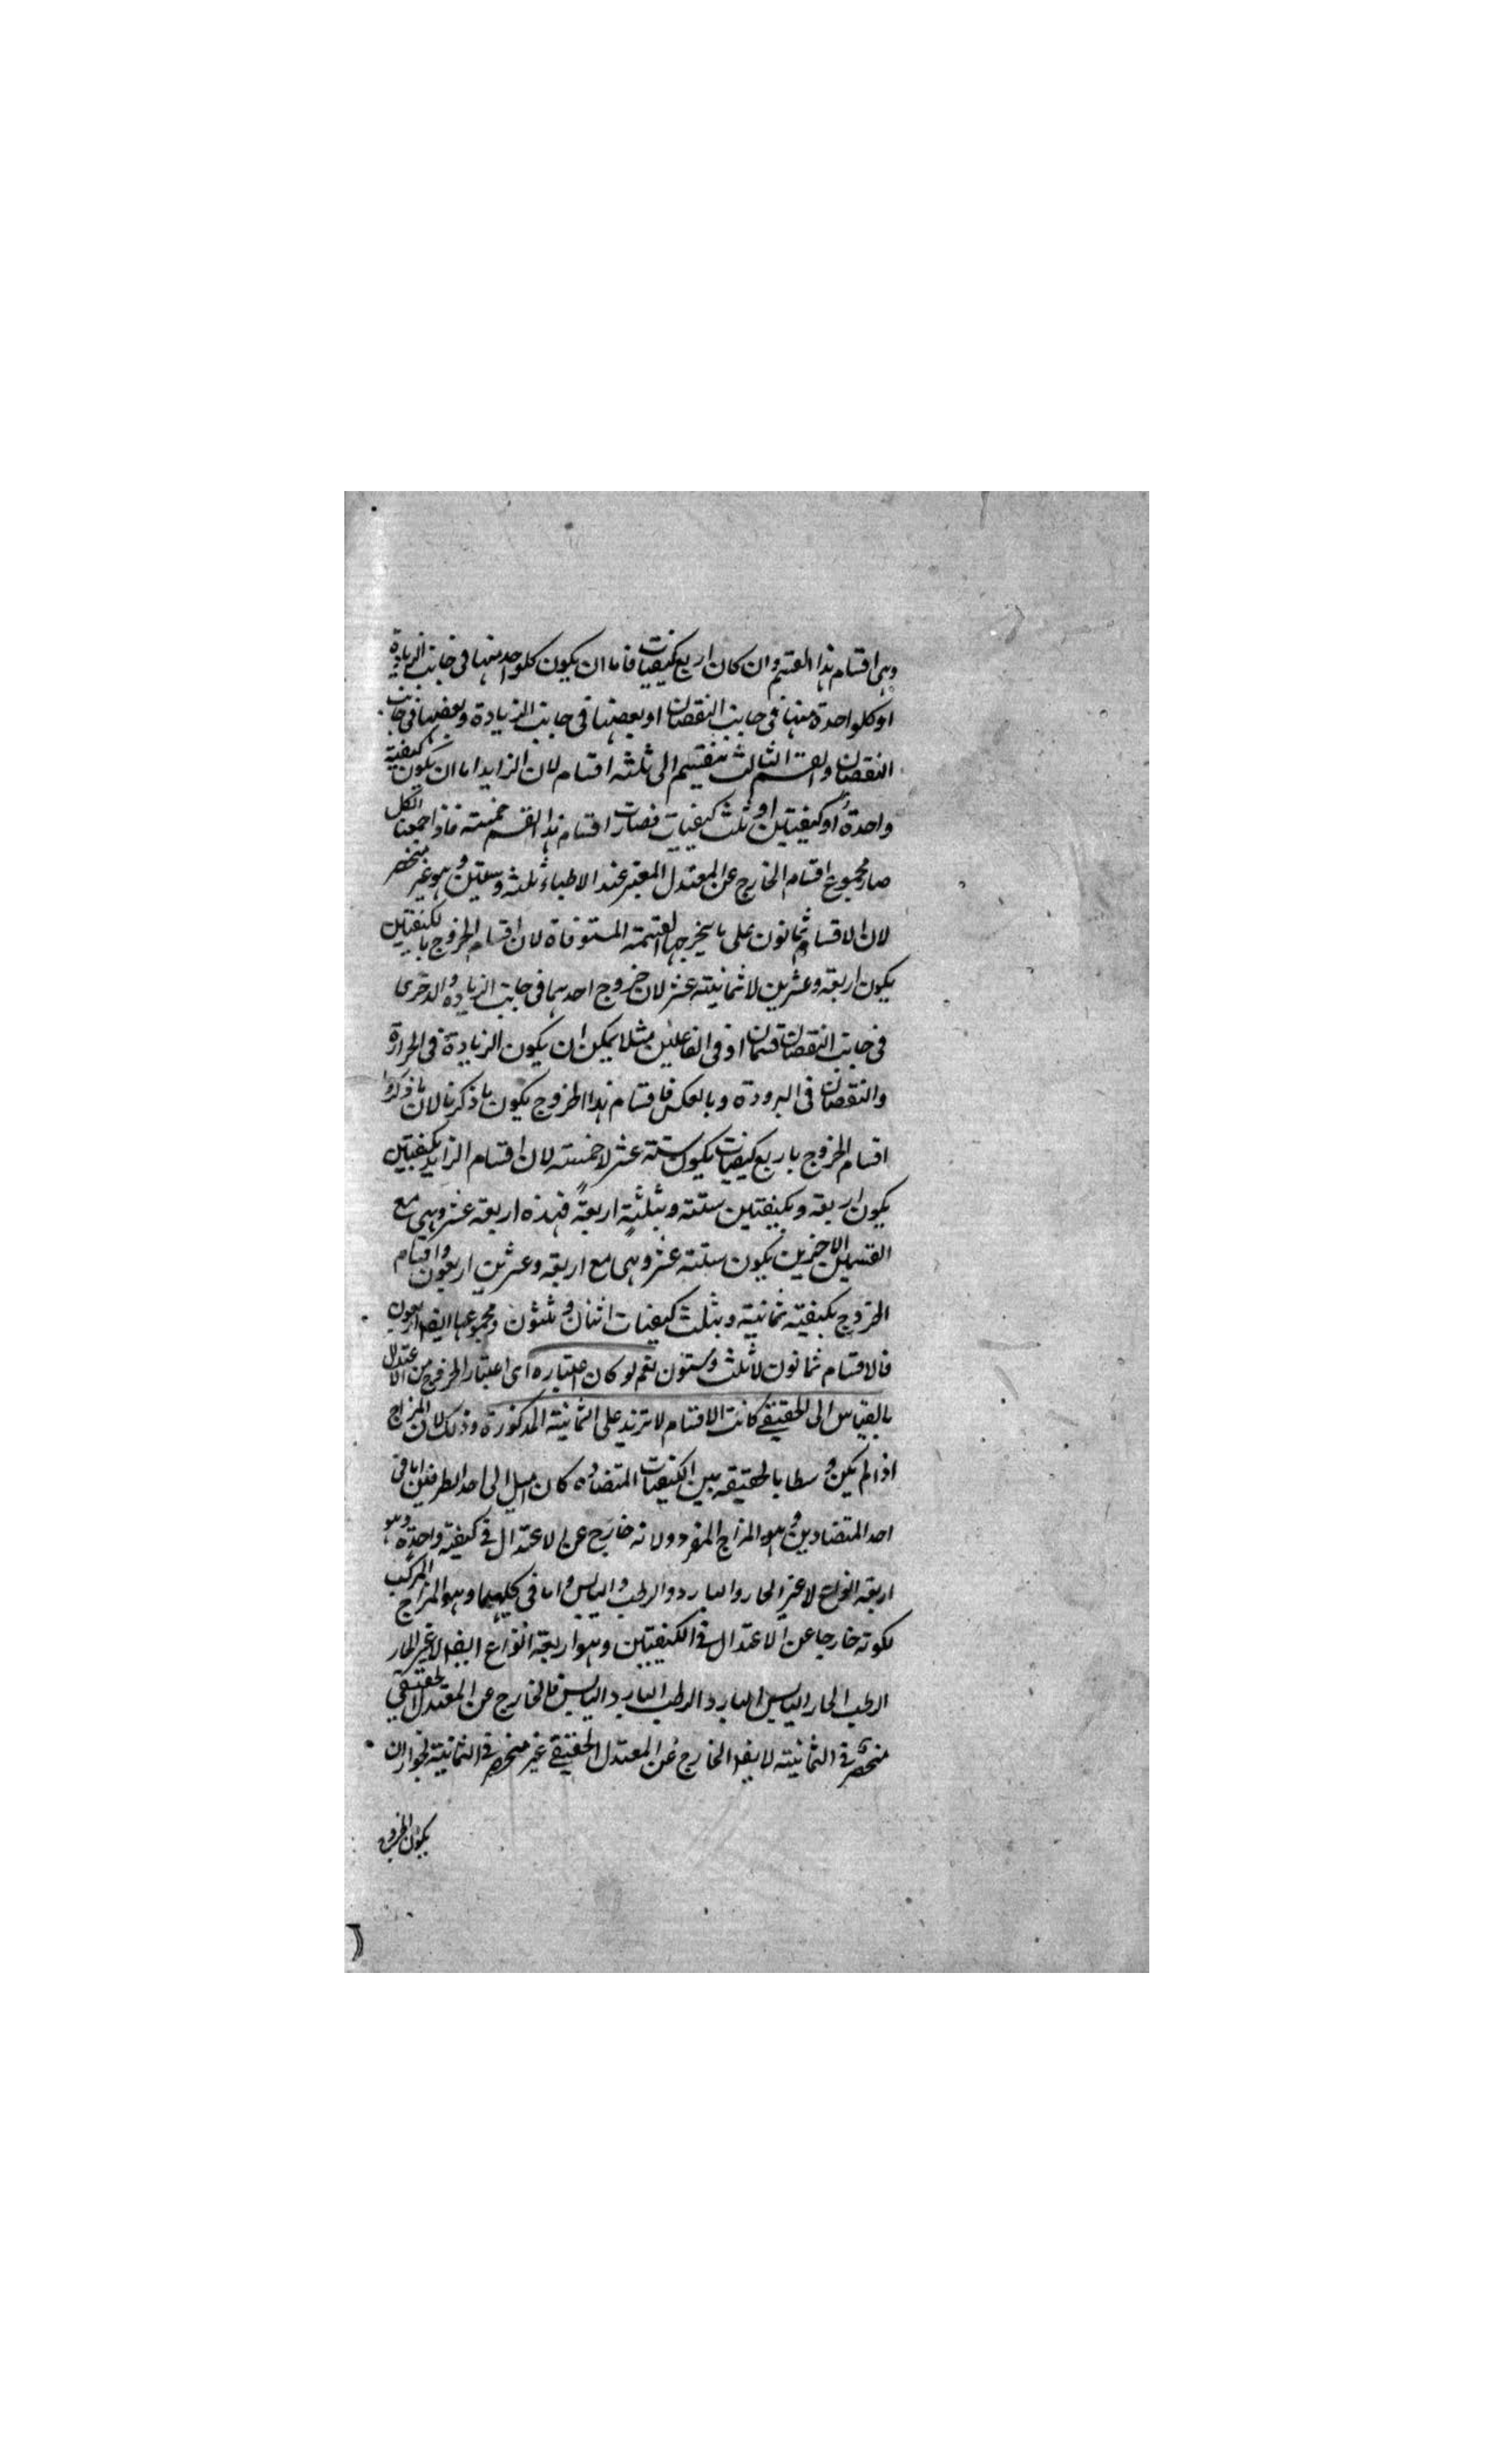 وهى اقسام هذا القسم وان كان اربع كيفيات فاما ان يكون كلواحد منها فى جانب الزيادة
او كلواحدة منها فى جانب النقصان او بعضها فى جانب الزيادة وبعضها فى جانب
النقصان والقسم الثالث ينقسم الى ثلثه اقسام لان الزايد اما ان يكون كيفية
واحدة او كيفيتين او ثلث كيفيات فصارت اقسام هذا القسم خمسته فاذا جمعنا الكل
صار مجموع اقسام الخارج عن المعتدل المعتبر عند الاطباء ثلثه وستين وهو غير منحصر
لان الاقسام ثمانون على ما يخرجها القسمة المستوفاة لان اقسام الخروج بالكيفيتين
يكون اربعة وعشرين لا ثمانيته عشر لان خروج احدهما فى جانب الزياده والاخرى
فى جانب النقصان قسمان اذ فى الفاعلين مثلا يمكن ان يكون الزيادة فى الحرارة
والنقصان فى البرودة وبالعكس فاقسام هذا الخروج يكون ما ذكرنا لا ما ذكروا
اقسام الخروج باربع كيفيات يكون ستة عشر لا خمسته لان اقسام الزايد بكيفيتين
يكون اربعة وبكيفتين ستته وبثلثة اربعة فهذه اربعة عشر وهى مع
القسمين الاخيرين يكون ستته عشر وهى مع اربعة وعشرين اربعون واقسام
الخروج بكيفيته ثمانيته وبثلث كيفيات اثنان وثلثون ومجموعها ايضا اربعون
فالاقسام ثمانون لا ثلث وستون نعم لو كان اعتباره اى اعتبار الخروج من الاعتدال
بالقياس الى الحقيقے كانت الاقسام لا تزيد على الثمانيته المذكورة وذلك لان المزاج
اذا لم يكن وسطا بالحقيقه بين الكيفيات المتضاده كان اميل الى احد الطرفين اما فى
احد المتضادين وهو المزاج المفرد ولانه خارج عن الاعتدال فى كيفية واحدة وهو
اربعة انواع لا غير الحار والبارد والرطب واليابس واما فى كليهما وهو المزاج المركب
لكونه خارجا عن الاعتدال فى الكيفيتين وهو اربعة انواع ايضا لا غير الحار
الرطب الحار اليابس البارد الرطب البارد اليابس فالخارج عن المعتدل الحقيقي
منحصر فى الثمانيته لا يقال الخارج عن المعتدل الحقيقے غير منحصر فى الثمانيته لجواز ان
يكون الخروج